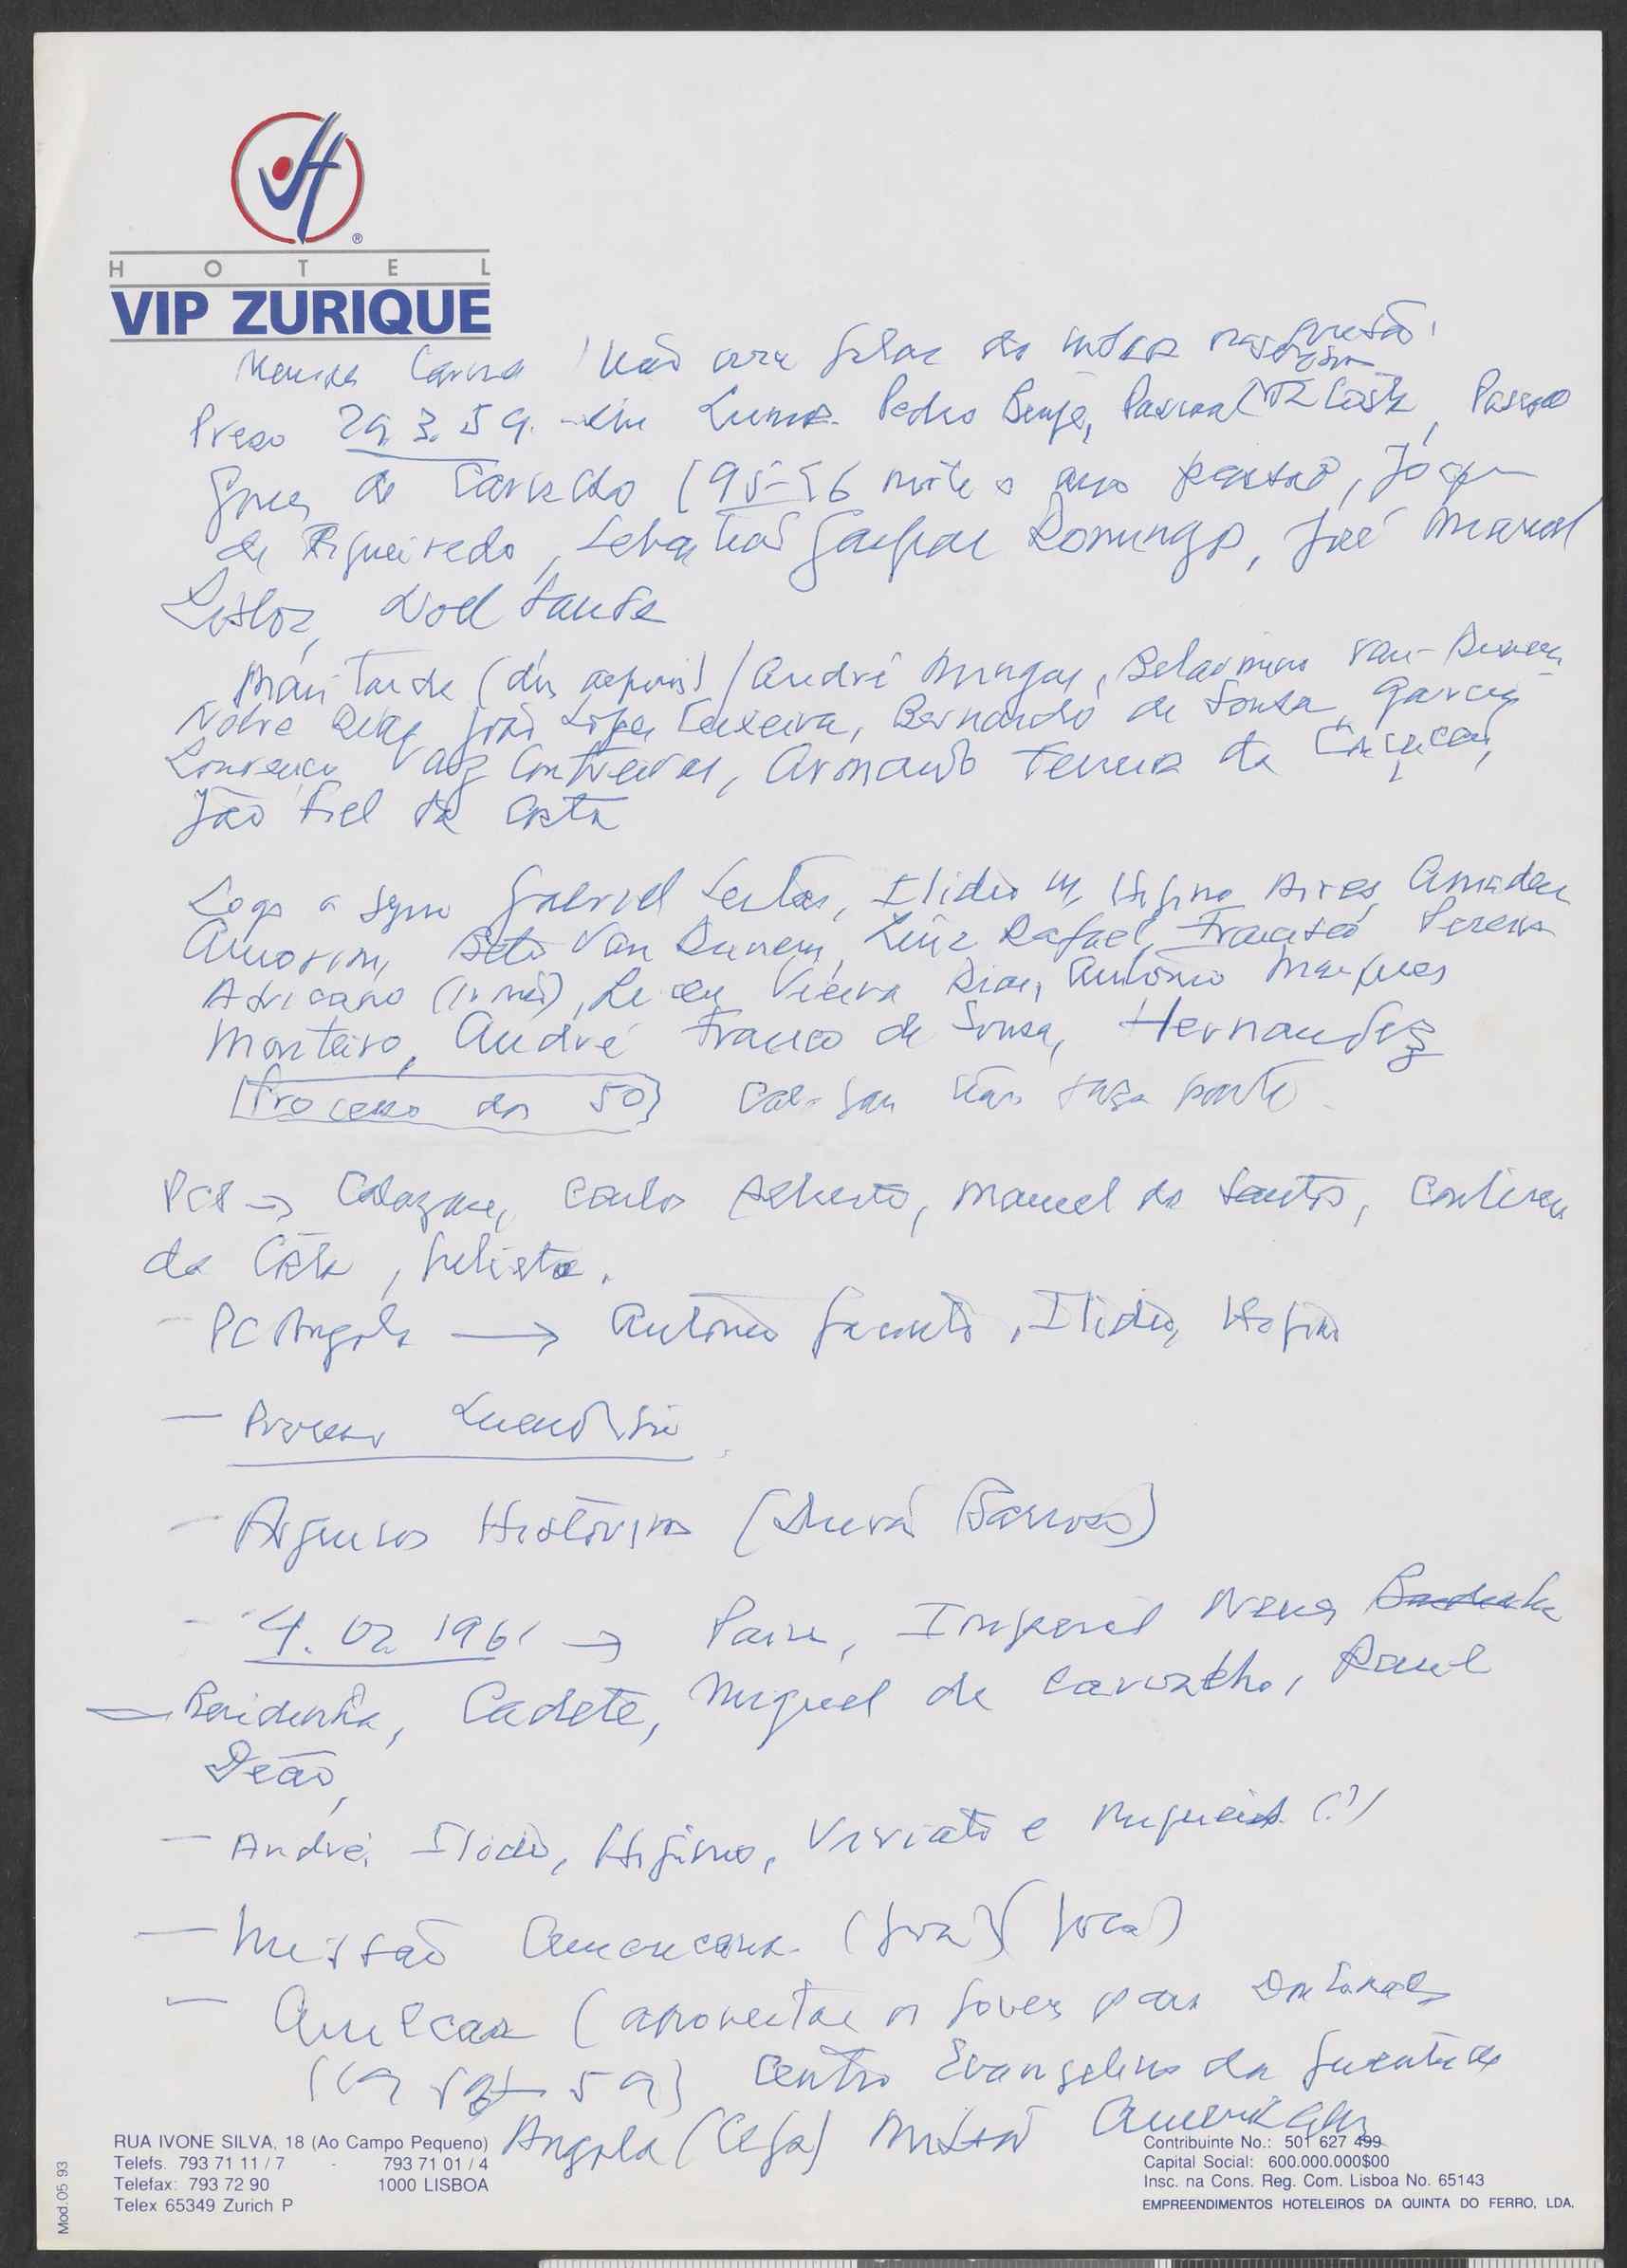 HOTEL
VIP ZURIQUE
®
Não falar da
Preso 29.3.59. Pedro Benje, Pascoal Costa,
de Carvalho (95-56 noite o ano
de Figueiredo, Sebastião Gaspar Domingo, José Manuel
Lisboa, Noel
Mais tarde (dias depois) / André Mingas, Belarmino Van-Dunem
Nobre Dias, João Lopes Teixeira, Bernardo de Sousa, Garcia
Lourenço Vaz Contreiras, Armando Ferreira da Conceição,
João Fiel da Costa
Logo a seguir Gabriel Leitão, Ilidio M, Higino Aires, Amadeu
Amorim, Beto Van Dunem, Luiz Rafael, Francisco Pereira
Africano (irmão), Liceu Vieira Dias, António Marques
Monteiro, André Franco de Sousa, Hernandez
(Processo dos 50) não parte
PCA → Calazans, Carlos Alberto, Manuel dos Santos, Contreiras
da Costa,
- PC Angola → António Jacinto, Ilidio, Higino
- Processo
- Arquivos Históricos (
- 4. 02 1961 → Paiva, Imperial Neves
Bendinha, Cadete, Miguel de Carvalho, Raul
Deão,
- André, Ilidio, Higino, Viriato e Migueis (?)
- Missão Americana
- Amilcar (aproveitar os jovens para
59) Centro Evangelico da Juventude
Angola (Ceja) Missão Americana
RUA IVONE SILVA, 18 (Ao Campo Pequeno)
Telefs. 793 71 11 / 7 - 793 71 01 / 4
Telefax: 793 72 90 1000 LISBOA
Telex 65349 Zurich P
Contribuinte No.: 501 627 499
Capital Social: 600.000.000$00
Insc. na Cons. Reg. Com. Lisboa No. 65143
EMPREENDIMENTOS HOTELEIROS DA QUINTA DO FERRO, LDA.
Mod.05 93